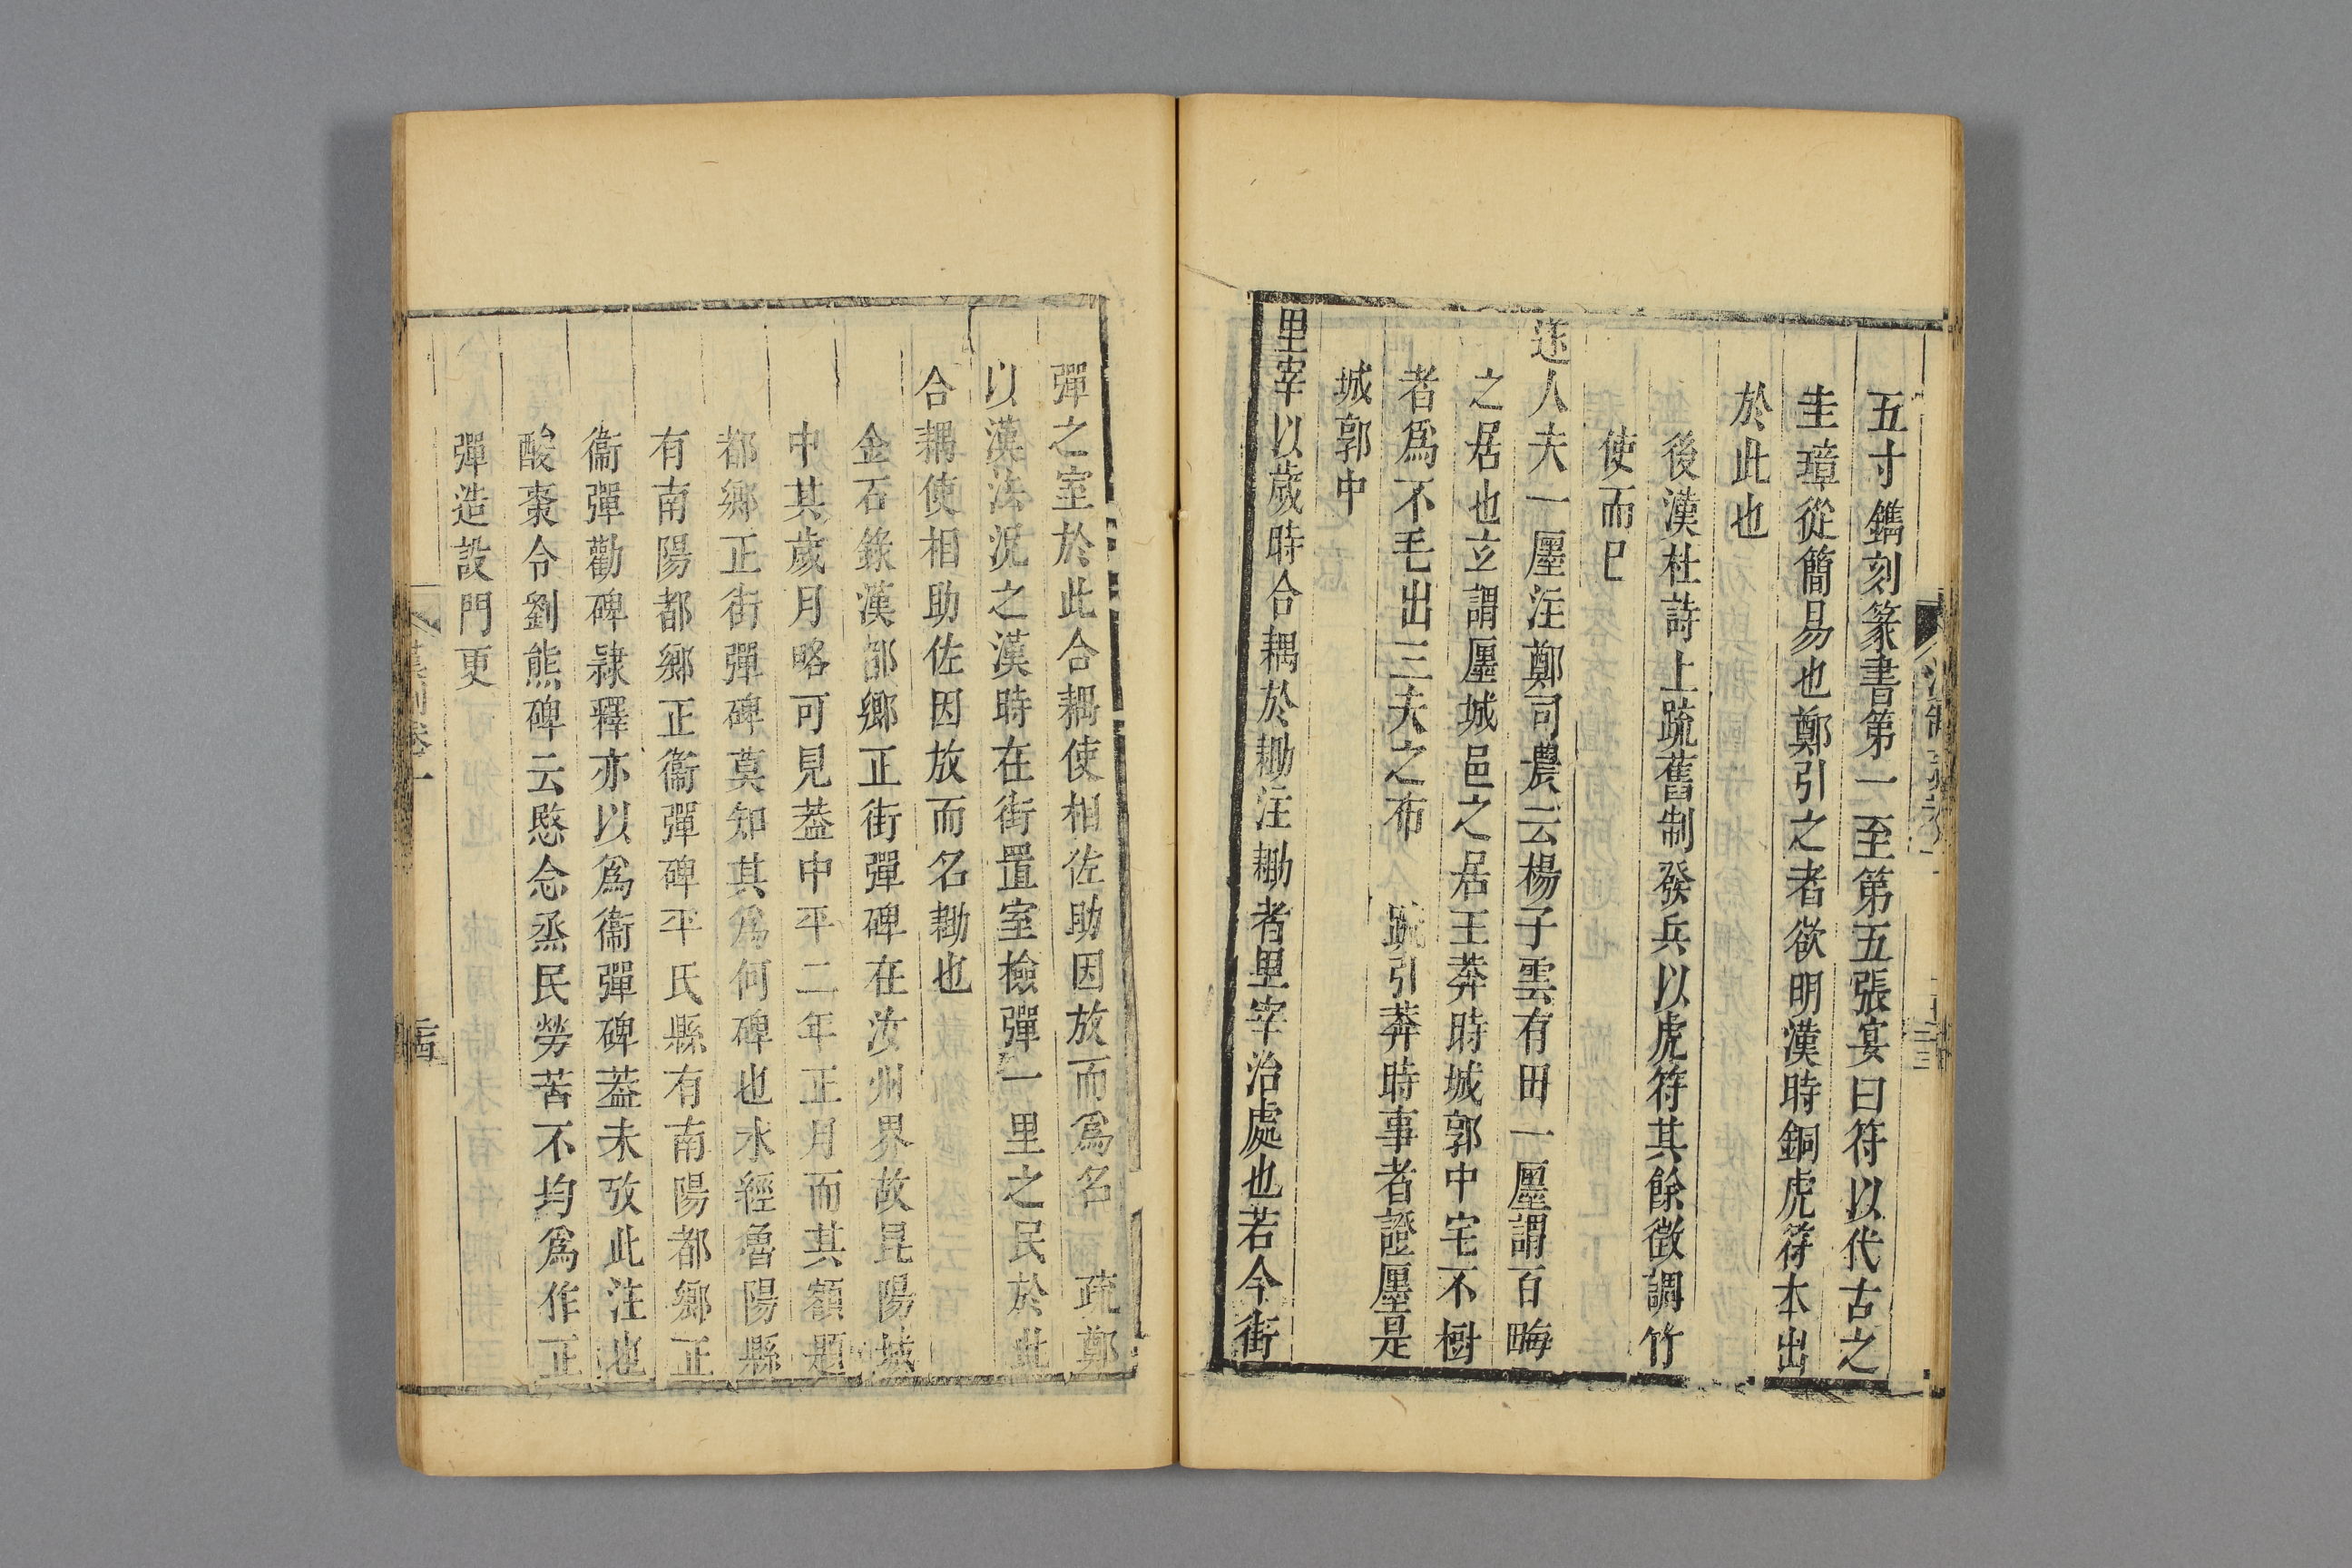 五寸鐫刻篆書第一至第五張宴曰符以代古之
圭璋從簡易也鄭引之者欲明漢時銅虎符本出
於此也
後漢杜詩上疏舊制發兵以虎符其餘徵調竹
使而已
遂人夫一廛注鄭司農云楊子雲有田一廛謂百畮
之居也玄謂廛城邑之居王莽時城郭中宅不樹
者爲不毛出三夫之布　疏引莽時事者證廛是
城郭中
里宰以歲時合耦於耡注耡者里宰治處也若今街
彈之室於此合耦使相佐助因放而爲名　疏鄭
以漢法況之漢時在街置室檢彈一里之民於此
合耦使相助佐因放而名耡也
金石錄漢都鄉正街彈碑在汝州界故昆陽城
中其歲月略可見葢中平二年正月而其額題
都鄉正街彈碑莫知其爲何碑也水經魯陽縣
有南陽都鄉正衞彈碑平氏縣有南陽都鄉正
衞彈勸碑隷釋亦以爲衞彈碑葢未攷此注也
酸棗令劉熊碑云愍念烝民勞苦不均爲作正
彈造設門更
漢制卷一